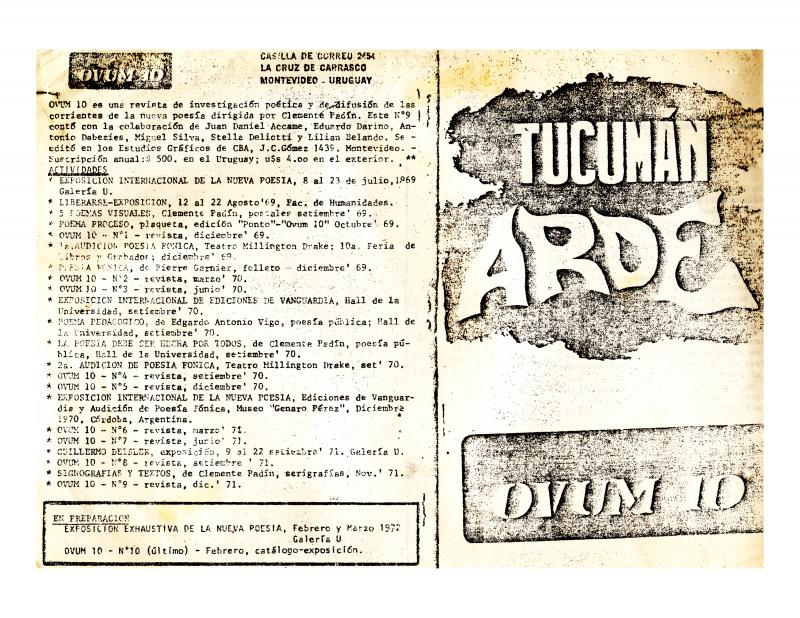 OVUM 10
CASILLA DE CORREO 2454
LA CRUZ DE CARRASCO
MONTEVIDEO - URUGUAY
OVUM 10 es una revista de investigación poética y de difusión de las
corrientes de la nueva poesía dirigida por Clemente Padín. Este N°9
contó con la colaboración de Juan Daniel Accame, Eduardo Darino, An-
tonio Dabezies, Miguel Silva, Stella Dellotti y Lilian Belando. Se -
editó en los Estudios Gráficos de CBA, J.C.Gómez 1439, Montevideo. -
Suscripción anual:$ 500. en el Uruguay; u$s 4.oo en el exterior. **
ACTIVIDADES
* EXPOSICION INTERNACIONAL DE LA NUEVA POESIA, 8 al 23 de julio,1969
Galería U.
* LIBERARSE-EXPOSICION, 12 al 22 Agosto'69, Fac. de Humanidades.
* 5 POEMAS VISUALES, Clemente Padín, postales setiembre' 69.
* POEMA PROCESO, plaqueta, edición "Ponto"-"Ovum 10" Octubre' 69.
* OVUM 10 - N°1 - revista, diciembre' 69.
* 1a.AUDICION POESIA FONICA, Teatro Millington Drake; 10a. Feria de
Libros y Grabados; diciembre' 69.
* POESIA FONICA, de Pierre Garnier, folleto - diciembre' 69.
* OVUM 10 - N°2 - revista, marzo' 70.
* OVUM 10 - N°3 - revista, junio' 70.
* EXPOSICION INTERNACIONAL DE EDICIONES DE VANGUARDIA, Hall de la
Universidad, setiembre' 70.
* POEMA PEDAGOGICO, de Edgardo Antonio Vigo, poesía pública; Hall de
la Universidad, setiembre' 70.
* LA POESIA DEBE SER HECHA POR TODOS, de Clemente Padín, poesía pú-
blica, Hall de la Universidad, setiembre' 70.
* 2a. AUDICION DE POESIA FONICA, Teatro Millington Drake, set' 70.
* OVUM 10 - N°4 - revista, setiembre' 70.
* OVUM 10 - N°5 - revista, diciembre' 70.
* EXPOSICION INTERNACIONAL DE LA NUEVA POESIA, Ediciones de Vanguar-
dia y Audición de Poesía Fónica, Museo "Genaro Pérez", Diciembre
1970, Córdoba, Argentina.
* OVUM 10 - N°6 - revista, marzo' 71.
* OVUM 10 - N°7 - revista, junio' 71.
* GUILLERMO DEISLER, exposición, 9 al 22 setiembre' 71. Galería U.
* OVUM 10 - N°8 - revista, setiembre ' 71.
* SIGNOGRAFIAS Y TEXTOS, de Clemente Padín, serigrafías, Nov.' 71.
* OVUM 10 - N°9 - revista, dic.' 71.
EN PREPARACION
EXPOSICION EXHAUSTIVA DE LA NUEVA POESIA, Febrero y Marzo 1972
Galería U
OVUM 10 - N°10 (último) - Febrero, catálogo-exposición.
TUCUMÁN
ARDE
OVUM 10